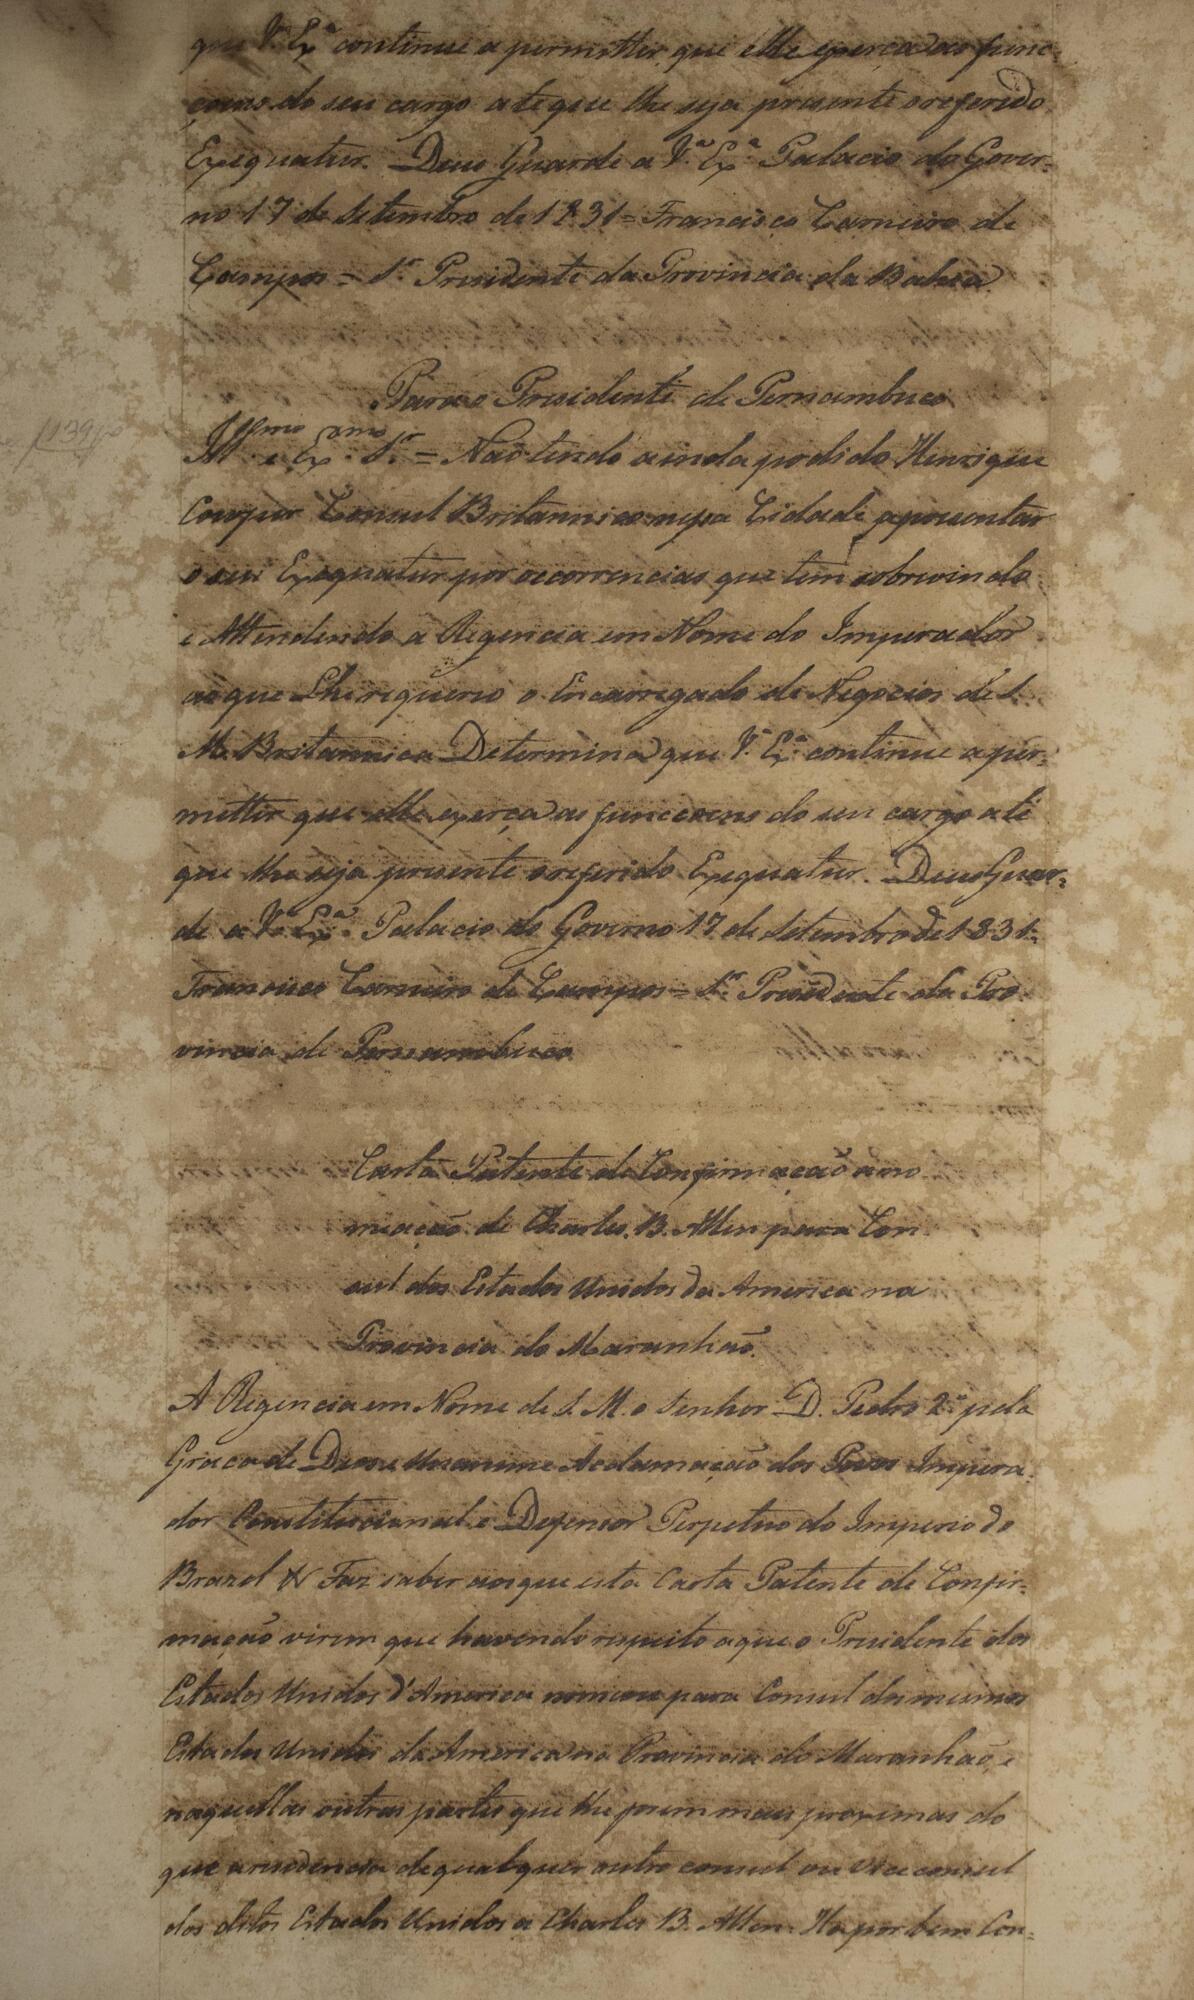 que V. Exª continue a permittir que elle exerça as func-
çoens do seu cargo até que lhe seja presente o referido
Exequatur. Deus Guarde a Vª Exª Palacio do Gover-
no 17 de Setembro de 1831 = Francisco Carneiro de
Campos = Sr. Presidente da Provincia da Bahia
Para o Presidente de Pernambuco
Illmo e Exmo Sr. = Não tendo ainda podido Henrique
Cowper Consul Britannico nessa Cidade apresentar
o seu Exequatur por occorrencias que tem sobrevindo
e Attendendo a Regencia em Nome do Imperador
ao que Lhe requereo o Encarregado de Negocios de S.
M. Britannica Determina que Vª Exª continue a per-
mittir que elle exerça as funccoens do seu cargo até
que lhe seja presente o referido Exequatur. Deus Guar-
de a Vª Exª Palacio do Governo 17 de Setembro de 1831 =
Francisco Carneiro de Campos = Sr. Presidente da Pro-
vincia de Pernambuco
Carta Patente de Confirmação a no
meação de Charles B. Allen para Con
sul dos Estados Unidos da America na
Provincia do Maranhão.
A Regencia em Nome de S. M. o Senhor D. Pedro 2º pela
Graça de Deos e Unanime Acclamação dos Povos Impera-
dor Constitucional e Defensor Perpetuo do Imperio do
Brazil & Faz saber aos que esta Carta Patente de Confir-
mação virem que havendo respeito a que o Presidente dos
Estados Unidos d'America nomeou para Consul dos mesmos
Estados Unidos da America na Provincia do Maranhão, e
naquellas outras partes que lhe forem mais proximas do
que a residencia de qualquer outro consul ou Vice consul
dos ditos Estados Unidos a Charles B. Allen. Ha por bem Con-